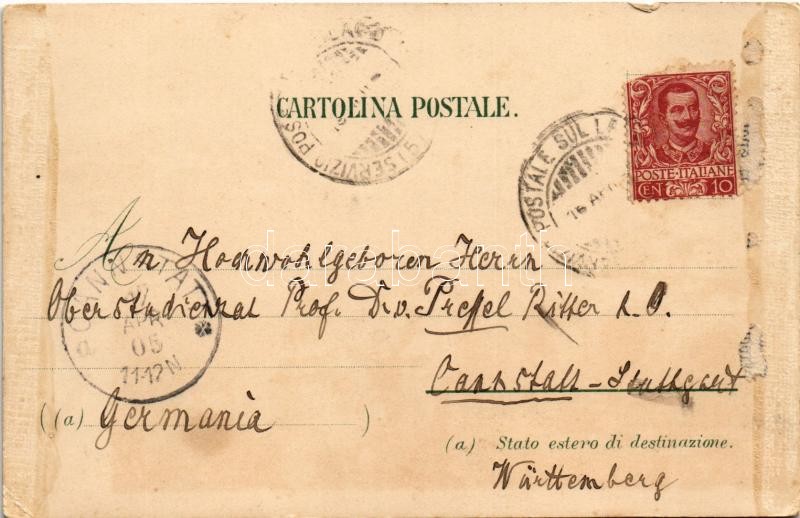 CARTOLINA POSTALE.
SERVIZIO POS
POSTALE SUL LA
16 APR
POSTE·ITALIANE
CEN 10
An Hochwohlgeboren Herrn
Oberstudienrat Prof. Dr. v. Pressel Ritter h. O.
CANNSTATT
APR
05
11-12 N
Cannstatt - Stuttgart
(a) Germania )
(a) Stato estero di destinazione.
Württemberg
darabanth